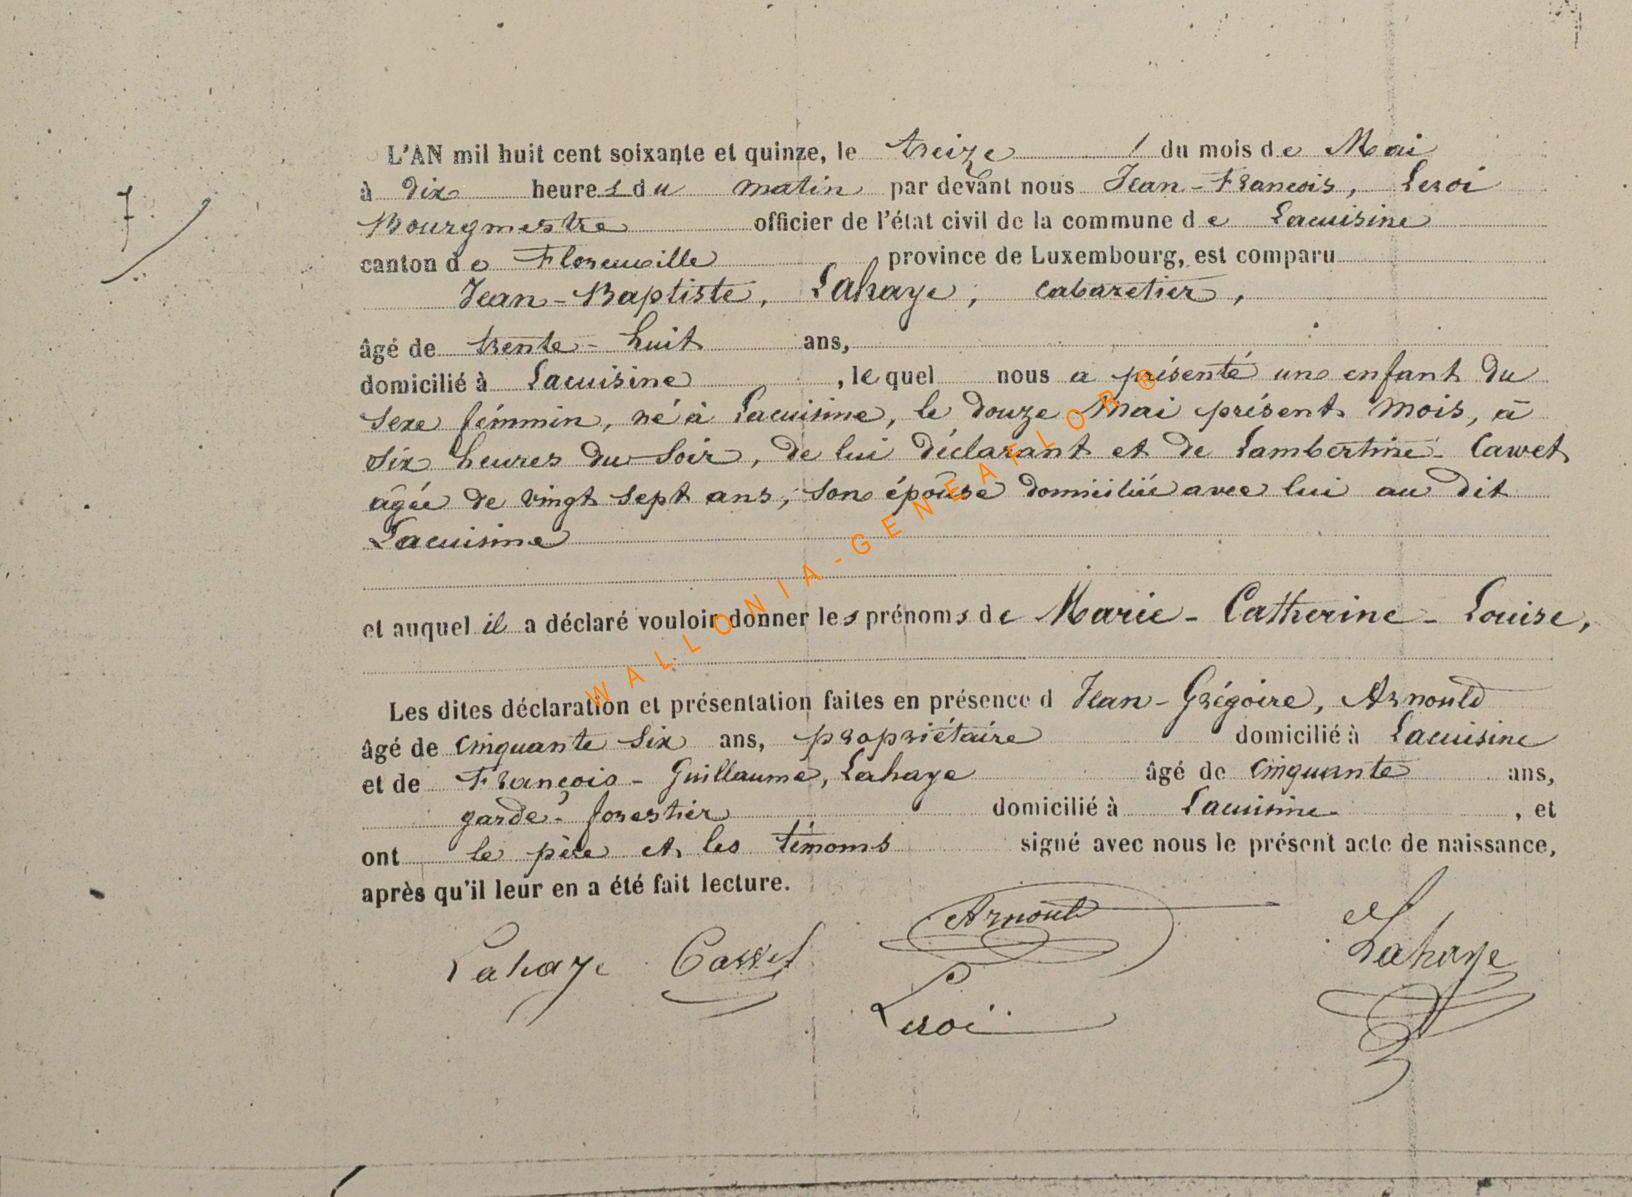 L'AN mil huit cent soixante et quinze, le treize du mois de Mai
7
à dix heures du matin par devant nous Jean-François, Leroi
Bourgmestre officier de l'état civil de la commune de Lacuisine
canton de Florenville province de Luxembourg, est comparu
Jean-Baptiste, Lahaye, cabaretier,
âgé de trente-huit ans,
domicilié à Lacuisine, lequel nous a présenté un enfant du
sexe féminin, né à Lacuisine, le douze Mai présent mois, à
six heures du soir, de lui déclarant et de Lambertine Cawet
âgée de vingt sept ans, son épouse domiciliée avec lui au dit
Lacuisine
et auquel il a déclaré vouloir donner les prénoms de Marie-Catherine-Louise,
Les dites déclaration et présentation faites en présence d Jean-Grégoire, Arnould
âgé de cinquante six ans, propriétaire domicilié à Lacuisine
et de François-Guillaume, Lahaye âgé de cinquante ans,
garde-forestier domicilié à Lacuisine, et
ont le père et les témoins signé avec nous le présent acte de naissance,
après qu'il leur en a été fait lecture.
Lahaye Arnould Lahaye
Leroi
WALLONIA-GENEAFLOR®